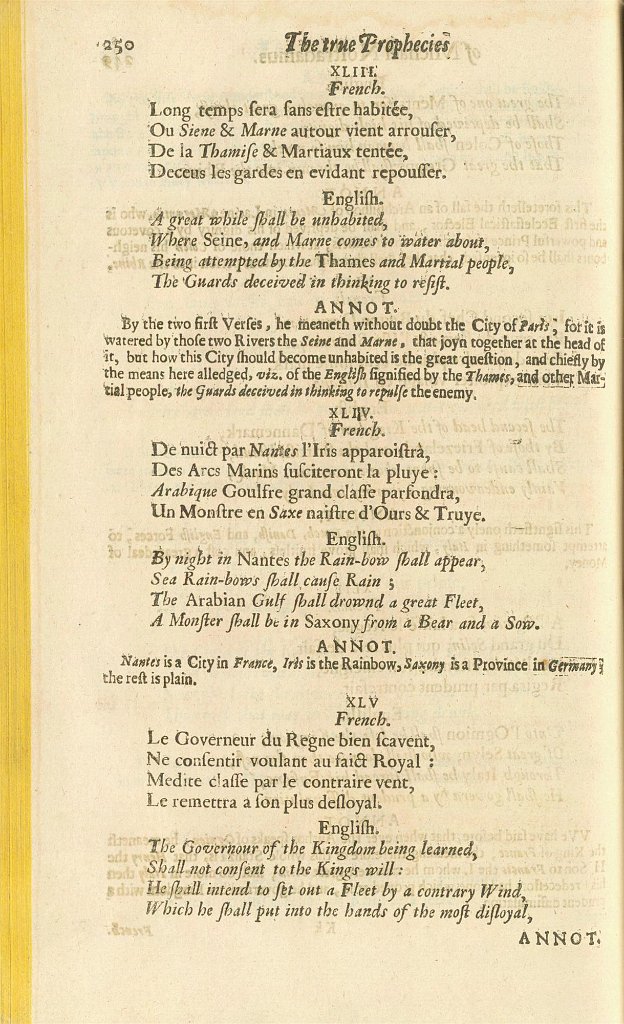 250 The true Prophecies
XLIII.
French.
Long temps ſera ſans eſtre habitée,
Ou Siene & Marne autour vient arrouſer,
De la Thamiſe & Martiaux tentée,
Deceus les gardes en evidant repouſſer.
Engliſh.
A great while ſhall be unhabited,
Where Seine, and Marne comes to water about,
Being attempted by the Thames and Martial people,
The Guards deceived in thinking to reſiſt.
ANNOT.
By the two firſt Verſes, he meaneth without doubt the City of Paris; for it is
watered by thoſe two Rivers the Seine and Marne, that joyn together at the head of
it, but how this City ſhould become unhabited is the great queſtion, and chiefly by
the means here alledged, viz. of the Engliſh ſignified by the Thames, and other Mar-
tial people, the Guards deceived in thinking to repulſe the enemy.
XLIV.
French.
De nuict par Nantes l'Iris apparoiſtrà,
Des Arcs Marins ſuſciteront la pluye :
Arabique Goulfre grand claſſe parfondra,
Un Monſtre en Saxe naiſtre d'Ours & Truye.
Engliſh.
By night in Nantes the Rain-bow ſhall appear,
Sea Rain-bows ſhall cauſe Rain ;
The Arabian Gulf ſhall drownd a great Fleet,
A Monſter ſhall be in Saxony from a Bear and a Sow.
ANNOT.
Nantes is a City in France, Iris is the Rainbow, Saxony is a Province in Germany;
the reſt is plain.
XLV
French.
Le Governeur du Regne bien ſcavent,
Ne conſentir voulant au faict Royal :
Medite claſſe par le contraire vent,
Le remettra a ſon plus deſloyal.
Engliſh.
The Governour of the Kingdom being learned,
Shall not conſent to the Kings will :
He ſhall intend to ſet out a Fleet by a contrary Wind,
Which he ſhall put into the hands of the moſt diſloyal,
ANNOT.